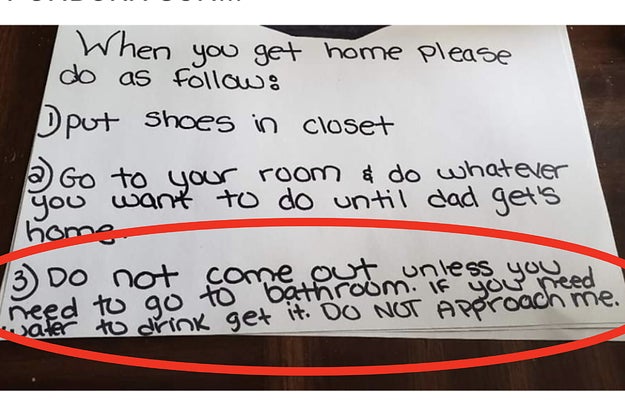 When you get home please
do as follow:
1) put shoes in closet
2) Go to your room & do whatever
you want to do until dad get's
home.
3) Do not come out unless you
need to go to bathroom. If you need
water to drink get it. DO NOT Approach me.